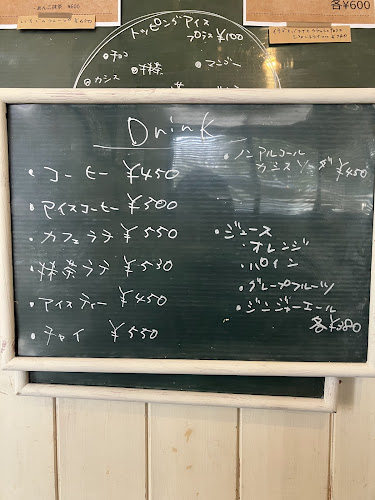 各¥600
トッピングアイス
プラス¥100
チョコ
抹茶
マンゴー
カシス
Drink
・コーヒー ¥450
・アイスコーヒー ¥500
・カフェラテ ¥550
・抹茶ラテ ¥530
・アイスティー ¥450
・チャイ ¥550
・ノンアルコール
カシスソーダ ¥450
・ジュース
・オレンジ
・パイン
・グレープフルーツ
・ジンジャーエール
各¥380